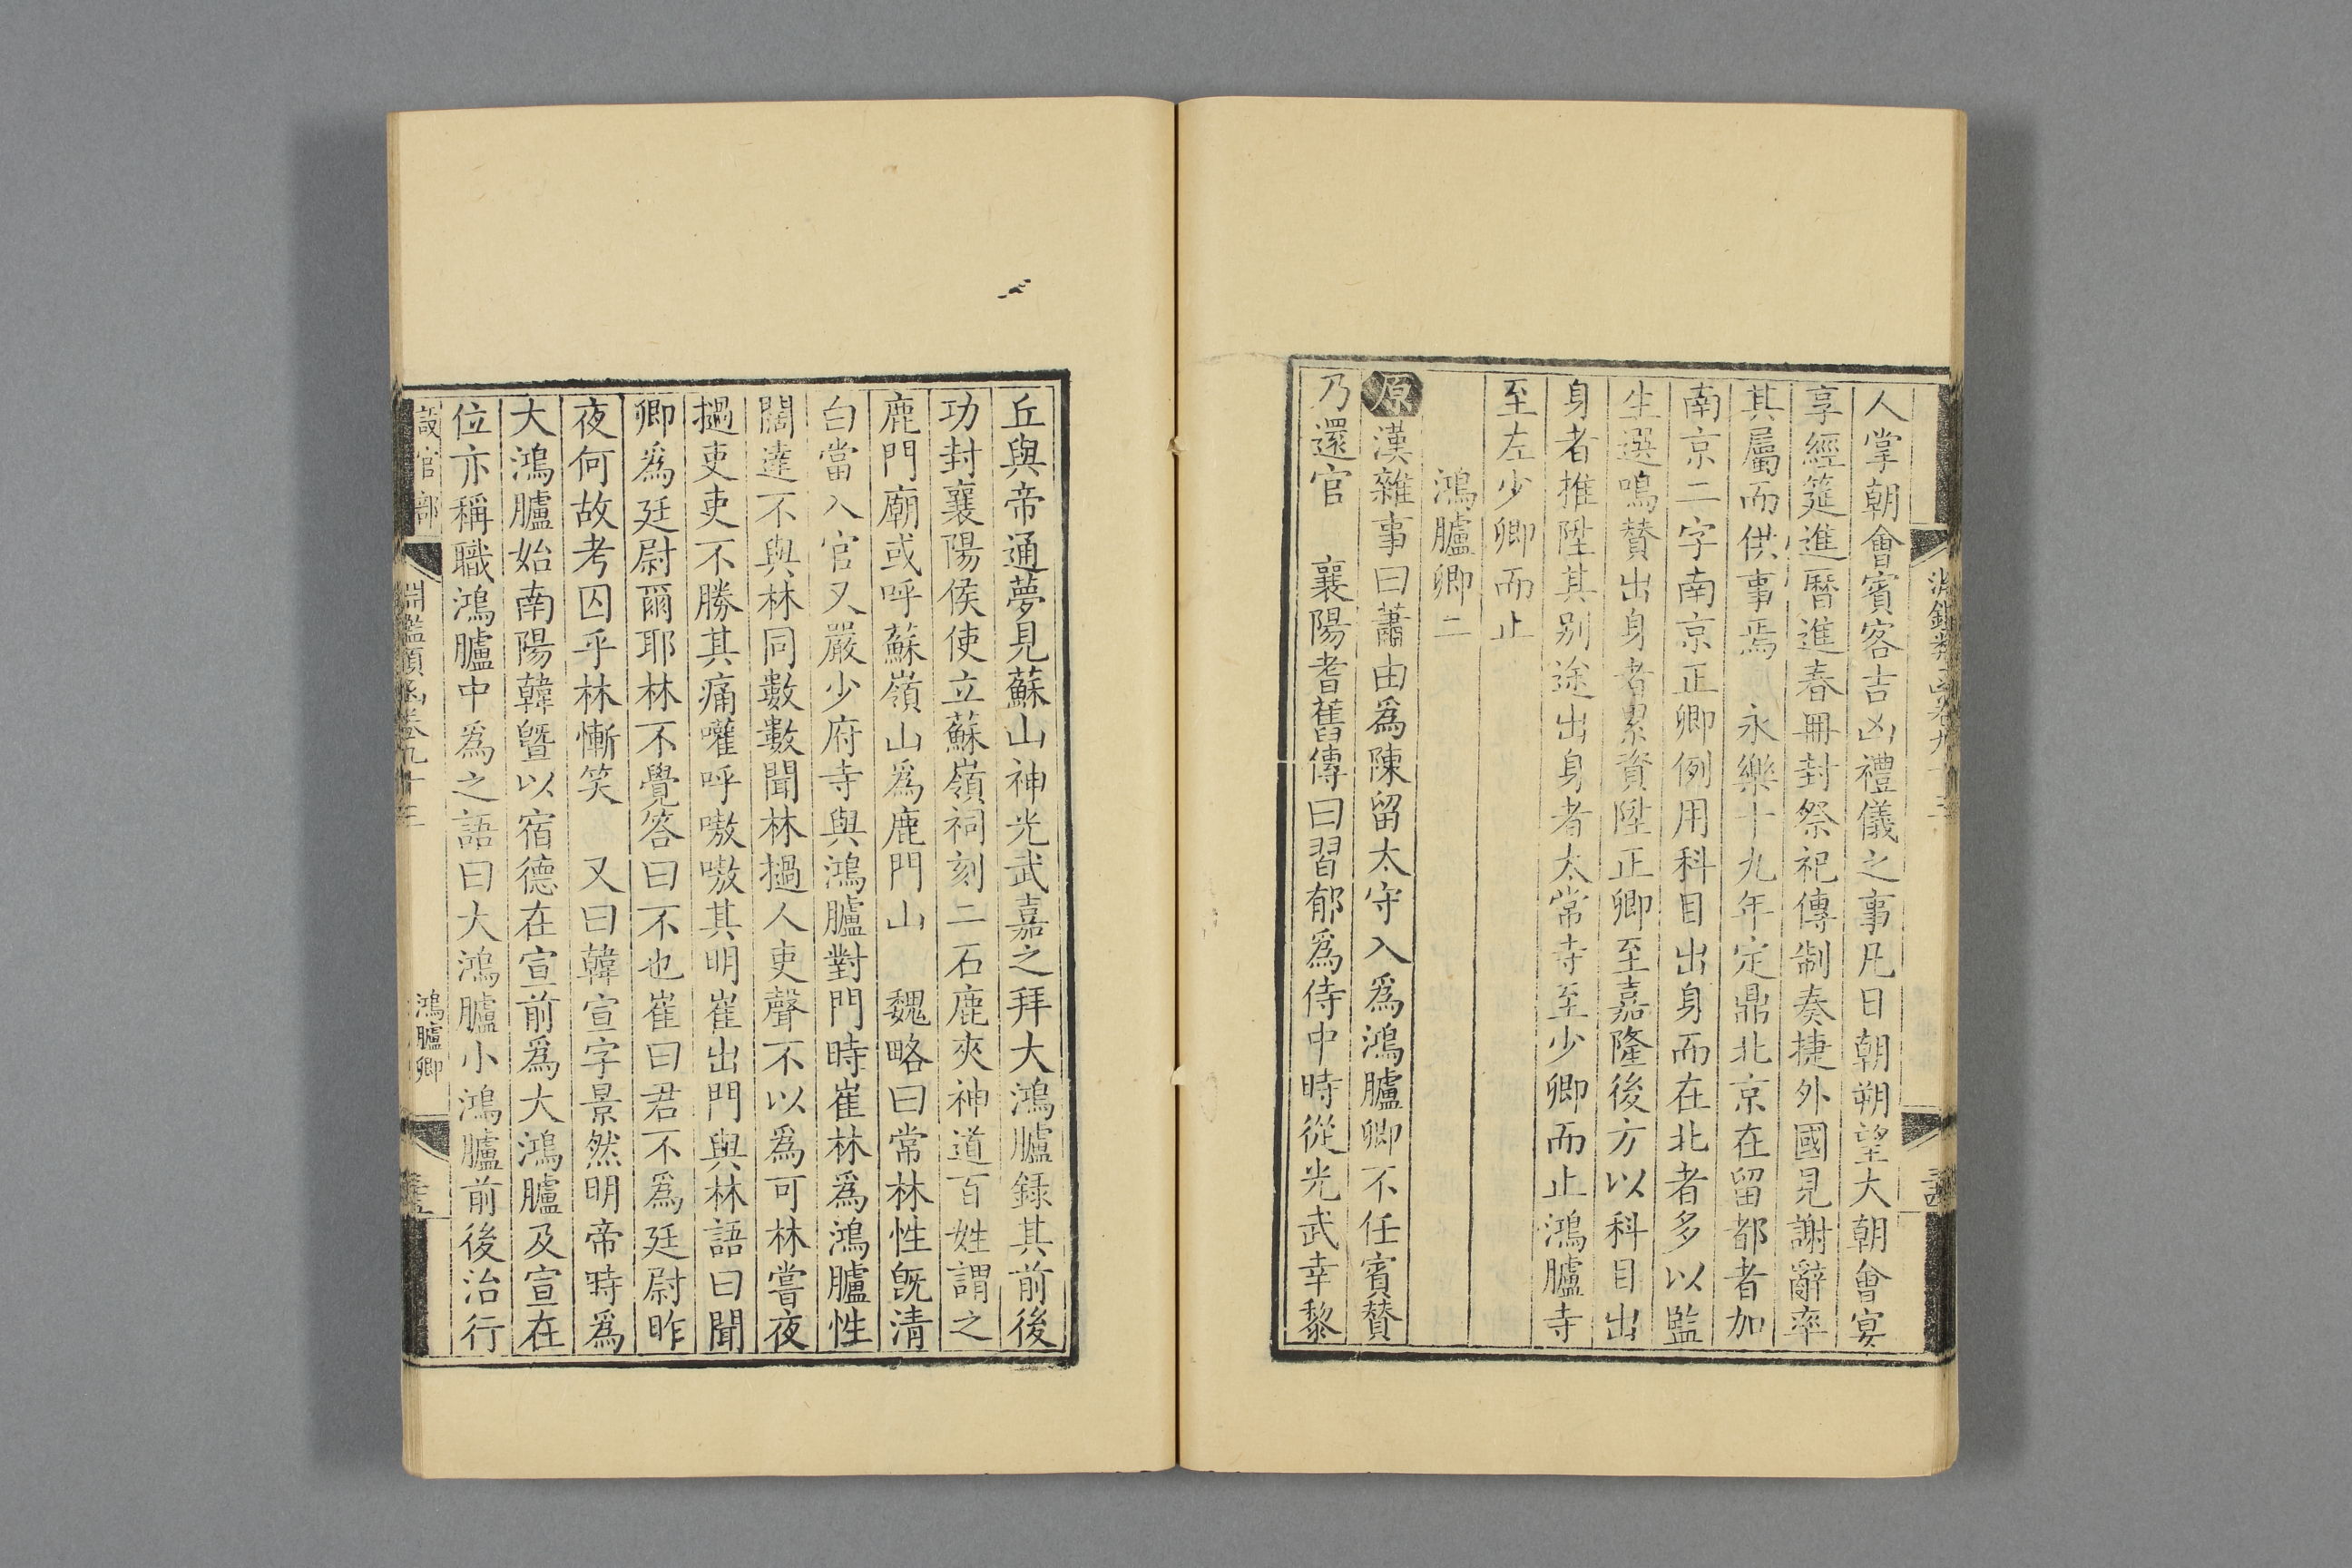 人掌朝會賓客吉凶禮儀之事凡日朝朔望大朝會宴
享經筵進曆進春冊封祭祀傳制奏捷外國見謝辭率
其屬而供事焉 永樂十九年定鼎北京在留都者加
南京二字南京正卿例用科目出身而在北者多以監
生選鳴贊出身者累資陞正卿至嘉隆後方以科目出
身者推陞其別途出身者太常寺至少卿而止鴻臚寺
至左少卿而止
鴻臚卿二
原漢雜事曰蕭由為陳留太守入為鴻臚卿不任賓贊
乃還官 襄陽耆舊傳曰習郁為侍中時從光武幸黎
丘與帝通夢見蘇山神光武嘉之拜大鴻臚録其前後
功封襄陽侯使立蘇嶺祠刻二石鹿夾神道百姓謂之
鹿門廟或呼蘇嶺山為鹿門山 魏略曰常林性既清
白當入官又嚴少府寺與鴻臚對門時崔林為鴻臚性
闊達不與林同數數聞林撾人吏聲不以為可林嘗夜
撾吏吏不勝其痛嚾呼嗷嗷其明崔出門與林語曰聞
卿為廷尉爾耶林不覺答曰不也崔曰君不為廷尉昨
夜何故考囚乎林慚笑 又曰韓宣字景然明帝時為
大鴻臚始南陽韓暨以宿德在宣前為大鴻臚及宣在
位亦稱職鴻臚中為之語曰大鴻臚小鴻臚前後治行
設官部 淵鑑類函卷九十三 鴻臚卿